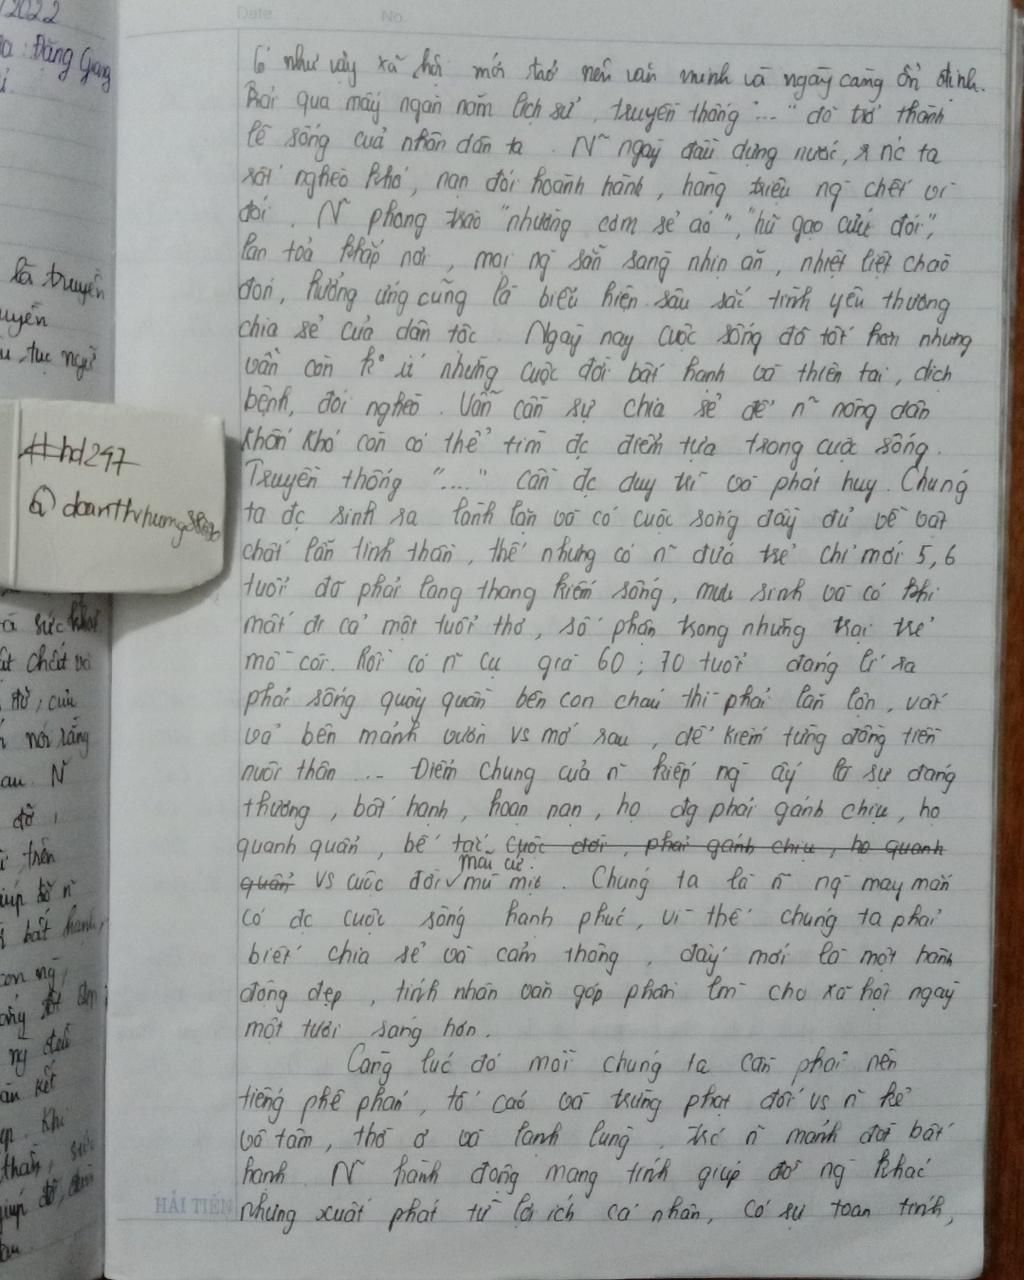 Date No.
/2022
a: Đặng Giang
là truyền
uyền
u, tục ngữ
#hd247
@doanthvhumg
và sức khoẻ
ật chất và
đỡ, của
nói rằng
au. N~
đỡ,
trên
giúp đỡ n~
bất hạnh,
con ng`,
ng` đều
oàn kết
ẹp. Khi
thần, sức
giúp đỡ,
Có như vậy xã hội mới taọ nên văn minh và ngày càng ổn định.
Trải qua mấy ngàn năm lịch sử, truyền thống "..." đã trở thành
lẽ sống của nhân dân ta. N~ ngày đầu dựng nước, nc ta
rất nghèo khó, nạn đói hoành hành, hàng triệu ng` chết vì
đói. N~ phong trào "nhường cơm sẻ áo", "hũ gạo cứu đói",
lan toả khắp nơi, mọi ng` sẵn sàng nhịn ăn, nhiệt liệt chào
đón, hưởng ứng cũng là biểu hiện sâu sắc tình yêu thương
chia sẻ của dân tộc. Ngày nay cuộc sống đã tốt hơn nhưng
vẫn còn k° ít những cuộc đời bất hạnh và thiên tai, dịch
bệnh, đói nghèo. Vẫn cần sự chia sẻ để n~ nông dân
khốn khó còn có thể tìm đc điểm tựa trong cuộc sống.
Truyền thống "...." cần đc duy trì và phát huy. Chúng
ta đc sinh ra lành lặn và có cuộc sống đầy đủ về vật
chất lẫn tinh thần, thế nhưng có n~ đứa trẻ chỉ mới 5, 6
tuổi đã phải lang thang kiếm sống, mưu sinh và có khi
mất đi cả một tuổi thơ, số phận trong những trại trẻ
mồ côi. Rồi có n~ cụ già 60; 70 tuổi đáng lí ra
phải sống quây quần bên con cháu thì phải lăn lộn, vất
vả bên mảnh vườn vs mớ rau, để kiếm từng đồng tiền
nuôi thân ... Điểm chung của n~ kiếp ng` ấy là sự đáng
thương, bất hạnh, hoạn nạn, họ đg phải gánh chịu, họ
quanh quẩn, bế tắc cuộc đời, phải gánh chịu, họ quanh
quẩn vs cuộc đời mãi cứ mù mịt. Chúng ta là n~ ng` may mắn
có đc cuộc sống hạnh phúc, vì thế chúng ta phải
biết chia sẻ và cảm thông, đấy mới là một hành
động đẹp, tính nhân văn góp phần làm cho xã hội ngày
một tươi sáng hơn.
Cùng lúc đó mỗi chúng ta cần phải nên
tiếng phê phán, tố cáo và trừng phạt đối vs n~ kẻ
vô tâm, thờ ơ và lạnh lùng, trc n~ mảnh đời bất
hạnh. N~ hành động mang tính giúp đỡ ng` khác
nhưng xuất phát từ lợi ích cá nhân, có sự toan tính,
HẢI TIẾN